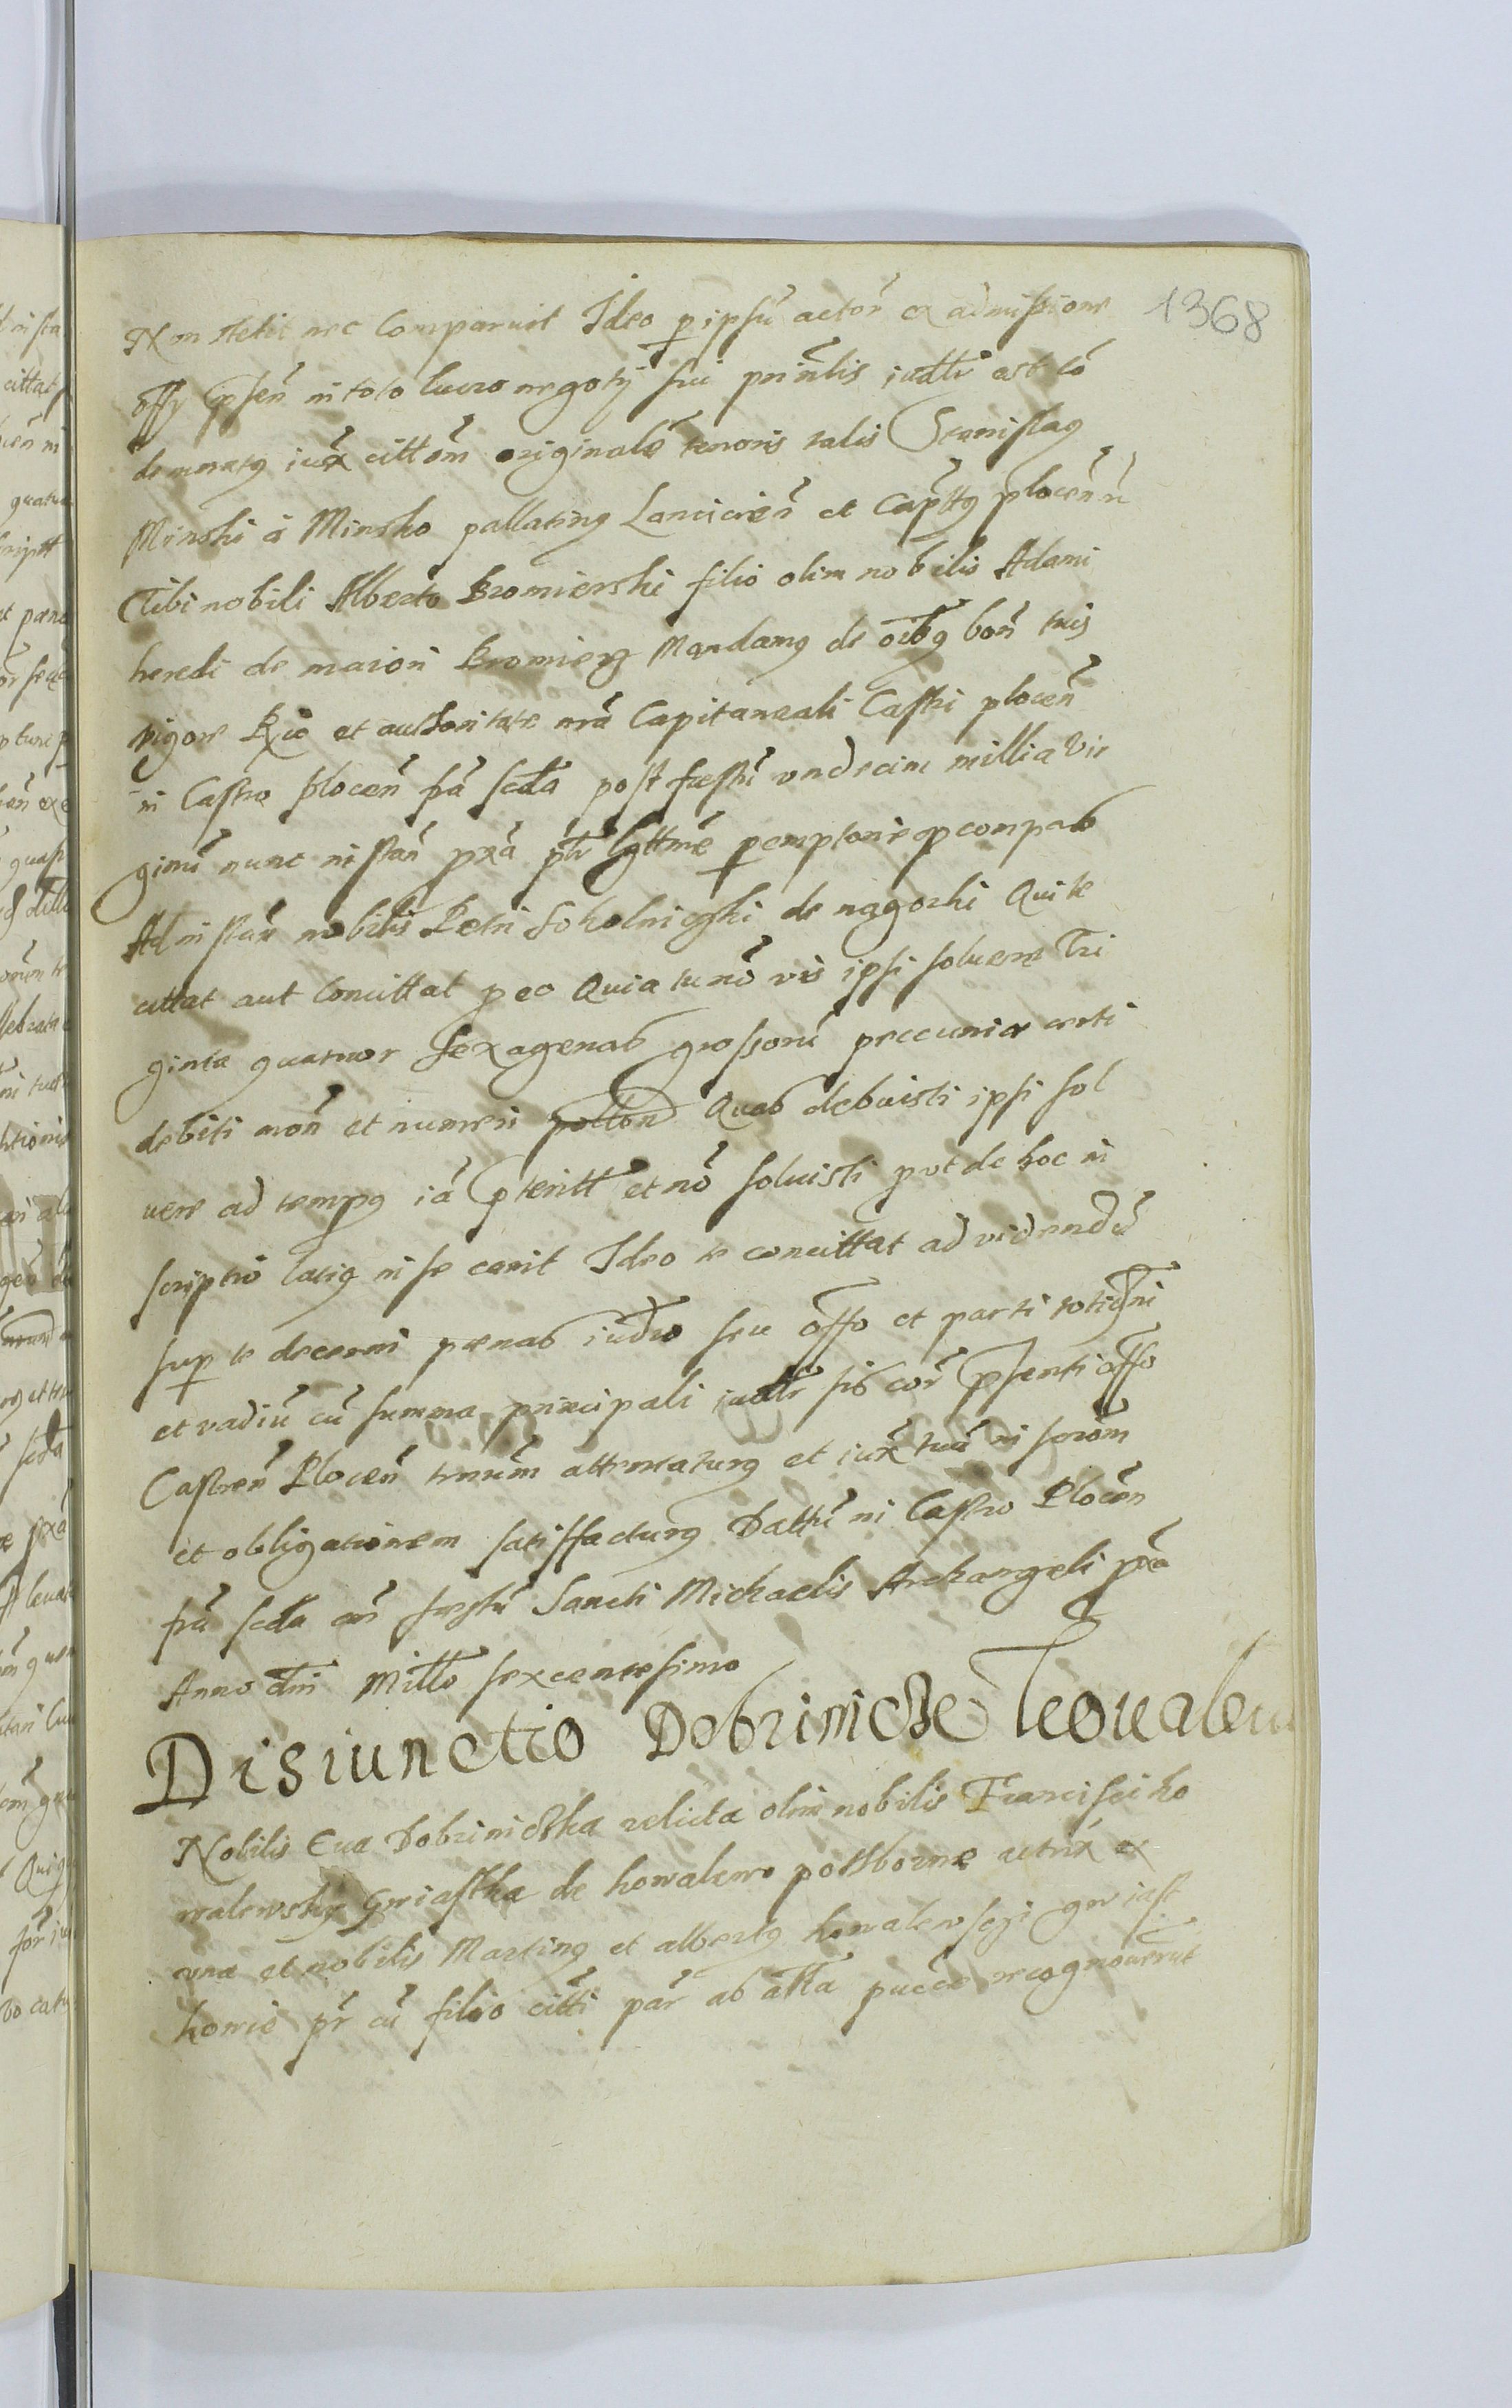 1368
Non stetit nec Comparuit Ideo p ipsũ actor̃ ex admissione
offy p̃sen̄ in toto lucro negotij sui prin̄lis iudltr est cō
demnatq iux̃ citt̃om originalē tenoris talis Stanislaq
Minski à Minsko pallatinq Lancicien̄ et Cap̃ttq plocen̄ n̄
Tibi nobili Alberto Bromierski filio olim nobilis Adami
heredi de maiori Bromierz Mandamq de oĩbq bon̄ tuis
vigore Rgio et authoritate nrã Capitaneali Castri plocen̄
in Castro plocen̄ frã scda post festũ undecim millia Vir
ginũ nunc instan̄ pxã p̃tr lgttmē pemptorie q compas
Ad instan̄ nobilis Petri Sokolniczki de nagorki Qui te
cittat aut concittat p eo Quia tu nō vis ipsi soluere Tri
ginta quatuor sexagenas grossorũ peccunia certi
debiti mon̄ et numeri pollon Quas debuisti ipsi sol
uere ad tempq iã p̃teritt et nō soluisti put de hoc in
scriptio latiq in se canit Ideo te concittat ad videndũ
sup te decerni pœnas iudio seu offo et parti totidni
et vadiũ cũ summa principali iudltr sis cor̃ p̃senti offo
Castren̄ Plocen̄ trm̃m attentaturq et iux̃ tuã inscr̃om
et obligationem satisfacturq Dattũ in Castro Plocen̄
frã scda an̄ festũ Sancti Michaelis Archangeli pxã
Anno dni Millo sexcentesimo
Disiunctio Dobrinicze Kowalew
Nobilis Eua Dobriniczka relicta olim nobilis Francisci ko
walewsky Gwiastka de kowalewo possborne actrix ex
una et nobilis Martinq et albertq kowalewsczi gwiast
kowie pr̃ cũ filio citti par̃ ab altra pucce recognouerũt